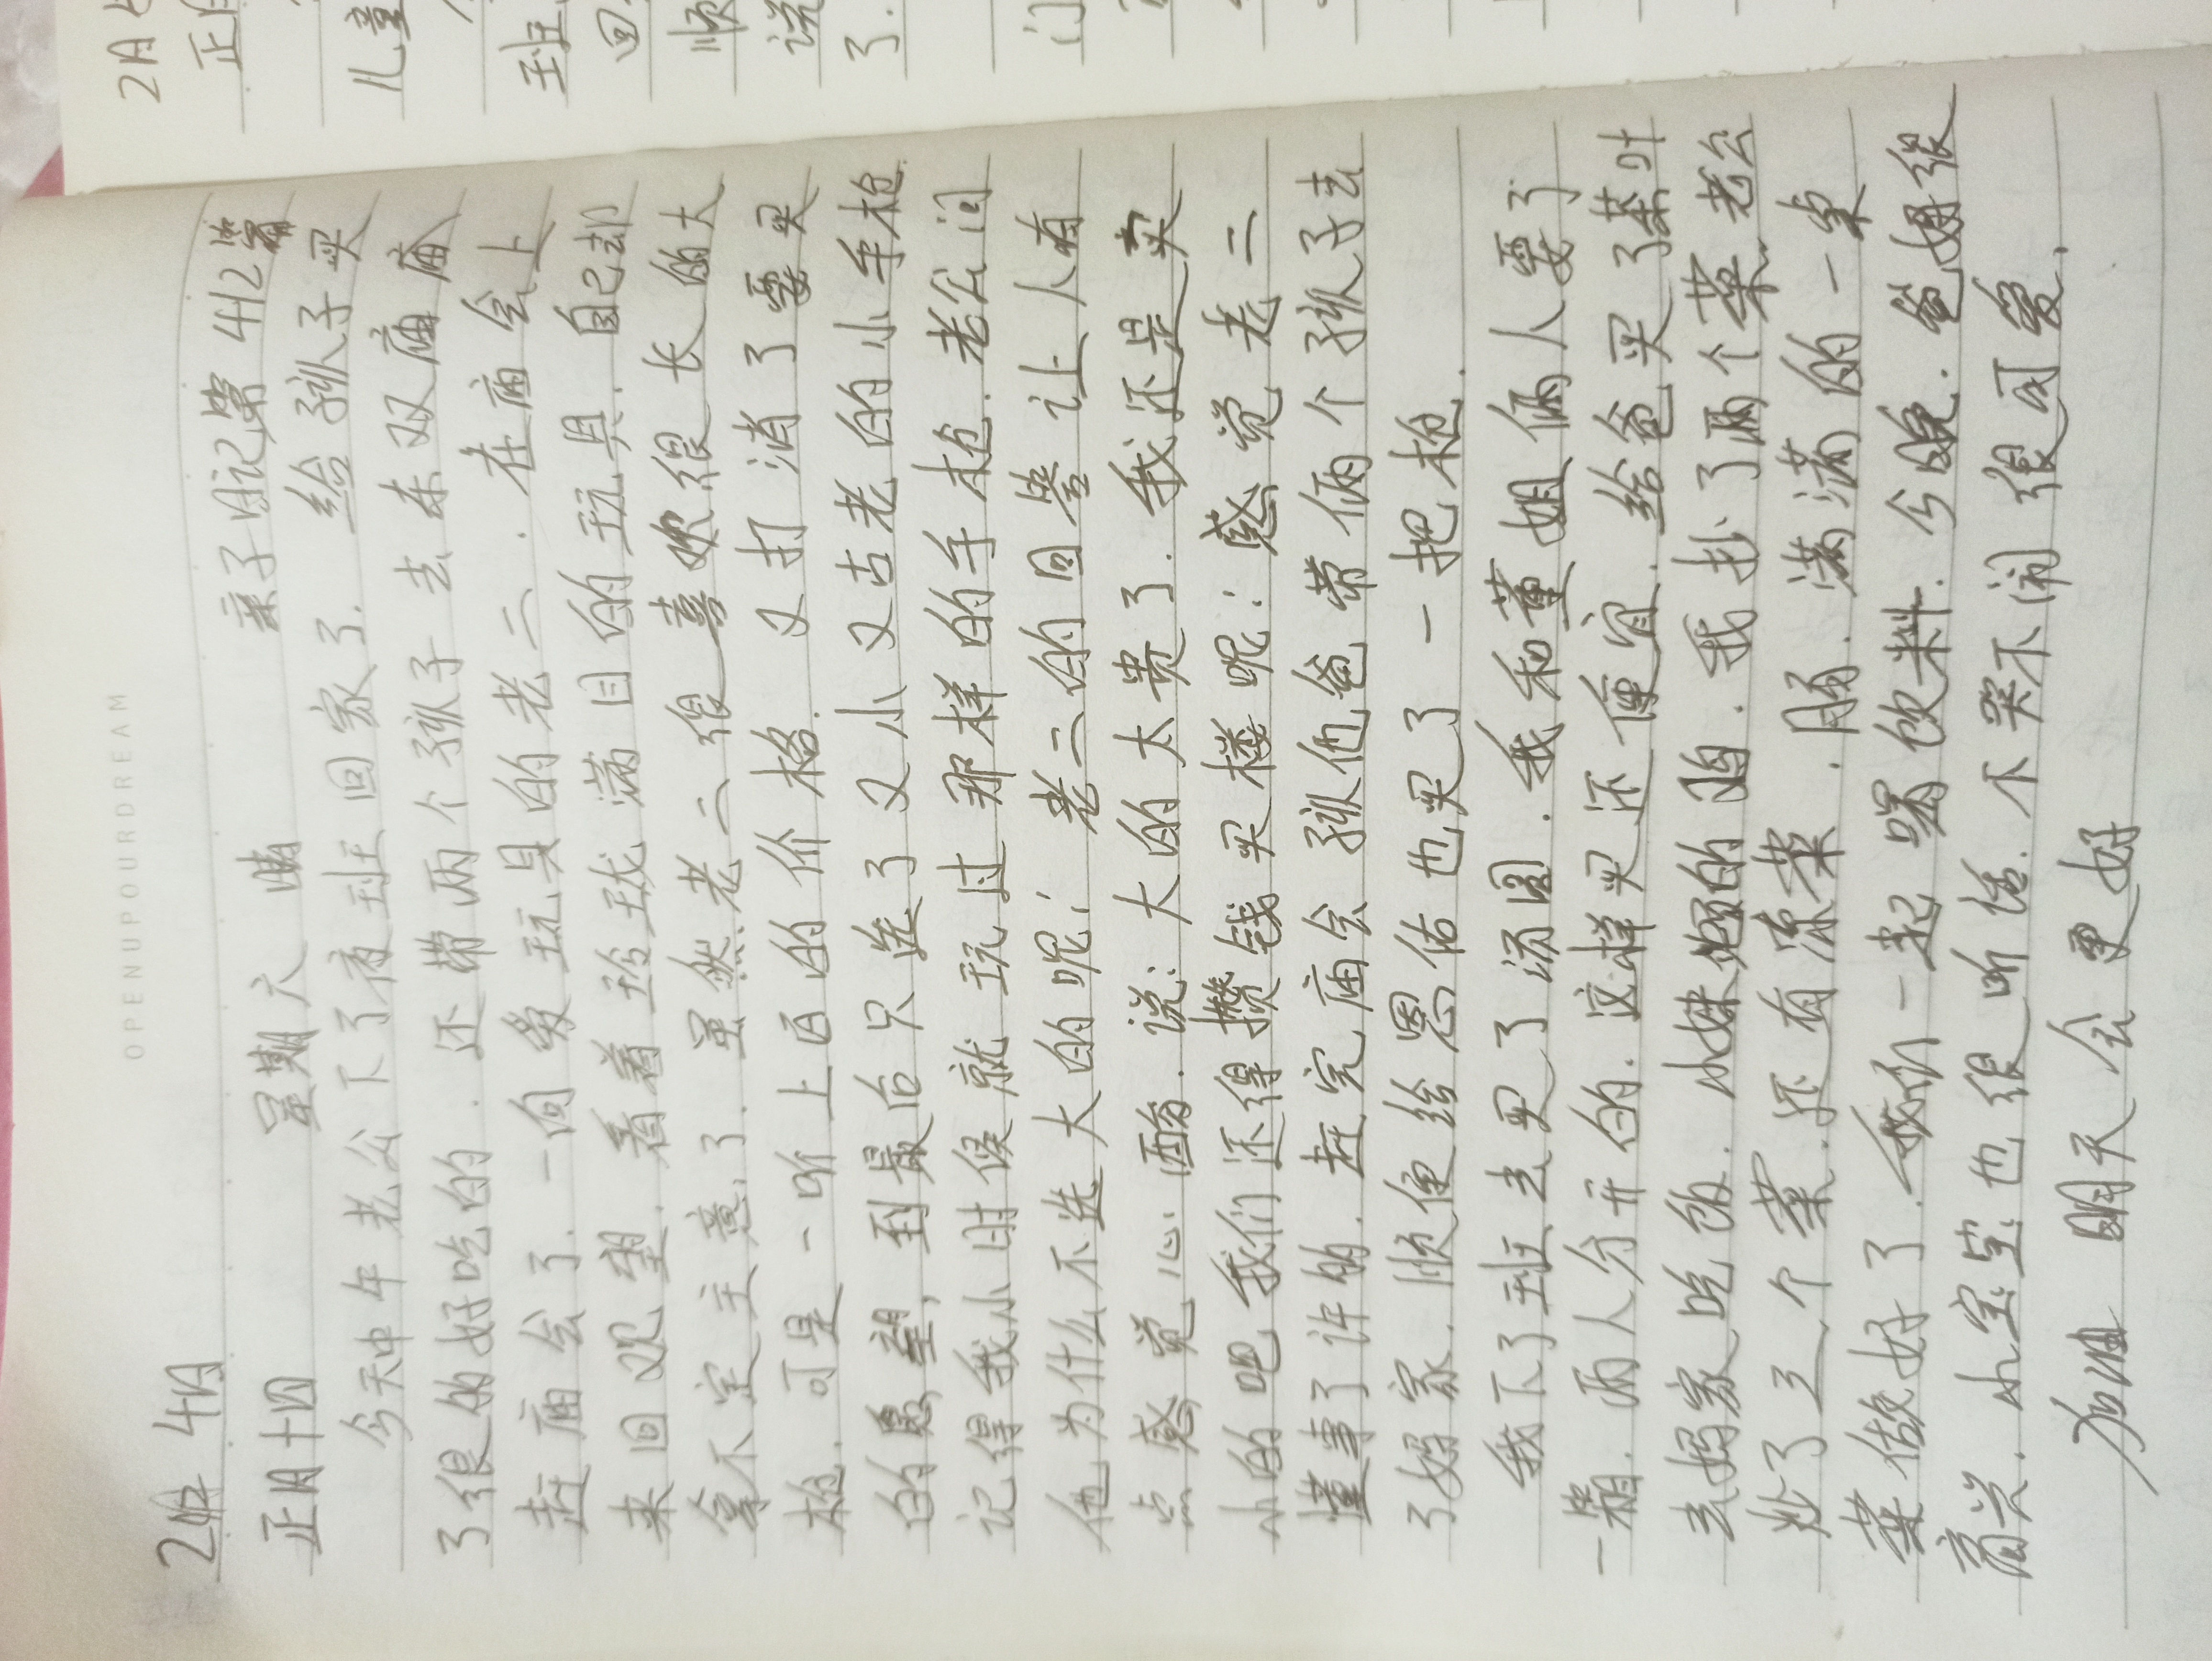 OPENUPYOURDREAM
2月4日 亲子日记第412篇
正月十四 星期六 晴
今天中午老公下了夜班回家了.给孩子买
了很多好吃的.还带两个孩子去东双庙庙
赶庙会了.一向爱玩具的老二.在庙会上
来回观望.看着玲珑满目的玩具.自己却
拿不定主意了.虽然老二很喜欢很长的大
枪.可是一听上百的价格.又打消了要买
的愿望,到最后只选了又小又古老的小手枪.
记得我小时候就玩过那样的手枪.老公问
他为什么不选大的呢;老二的回答让人有
点感觉心酸.说:大的太贵了.我还是买
小的吧我们还得攒钱买楼呢!感觉老二
懂事了许多.赶完庙会孩他爸带俩个孩子去
了妈家.顺便给恩佑也买了一把枪.
我下了班去买了汤圆.我和董姐俩人要了
一箱.两人分开的.这样买还便宜.给爸买了茶叶
去妈家吃饭.小妹炖的鸡.我抄了两个菜.老公
炒了三个菜.还有凉菜.肠.满满的一桌
菜做好了.我们一起喝着饮料.今晚.爸妈很
高兴.小宝宝也很听话.不哭不闹很可爱.
加油 明天会更好
2月
正月
儿童
班
回
顺
说
了.